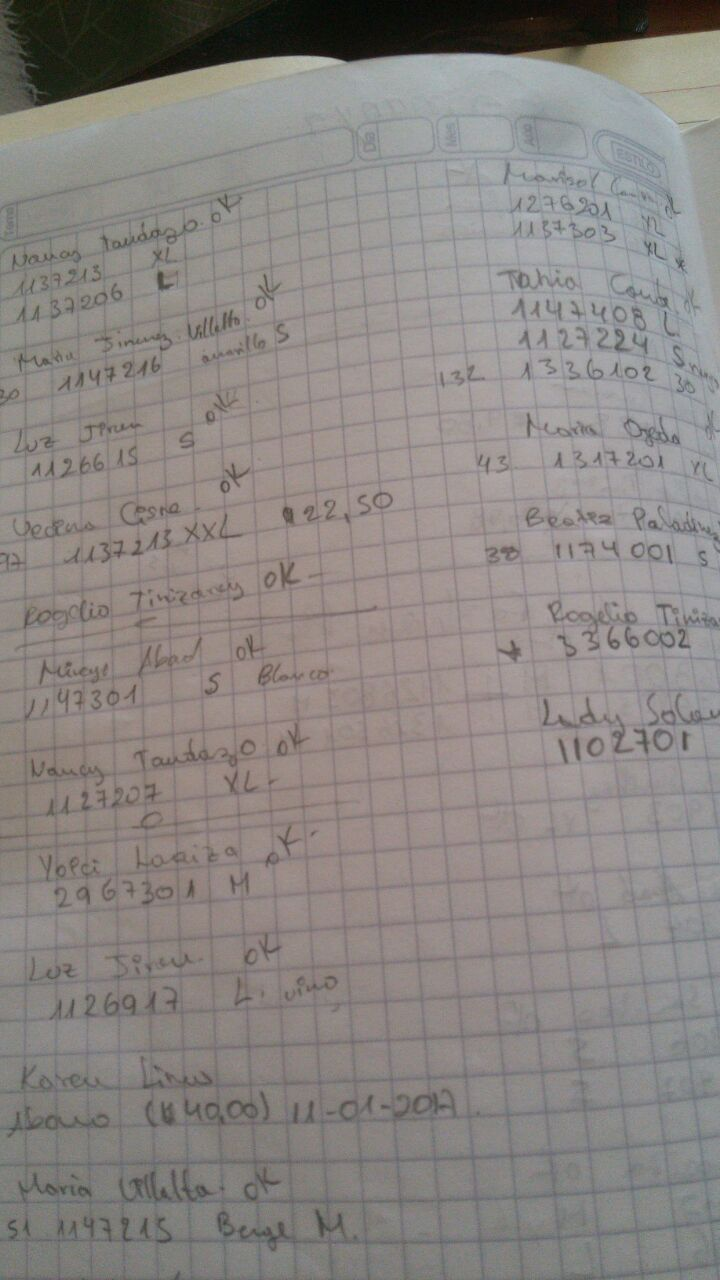 Día
Mes
Año
ESTILO
Nancy Tandazo. OK
1137213 XL
1137206 L
Maria Jimenez. Villalta. OK
30 1147216 amarillo S
Luz Jimen OK
1126615 S
OK
97 1137213 XXL $22,50
Rogelio Tinizaray OK -
Abad OK
1147301 S Blanco
Nancy Tandazo OK
1127207 XL -
Loaiza OK -
2967301 M
Luz Jimen. OK
1126917 L. vino
Karen
Abono ($40,00) 11-01-2017.
Maria Villalta. OK
51 1147215 Beige M.
Marisol
1276201 XL
1137303 XL *
Tahia
1147408 L
1127224 S
132 1336102 30
Maria Ogeda
43 1317201 XL
Beatez
38 1174001 S
Rogelio
* 3366002
Lady
1102701